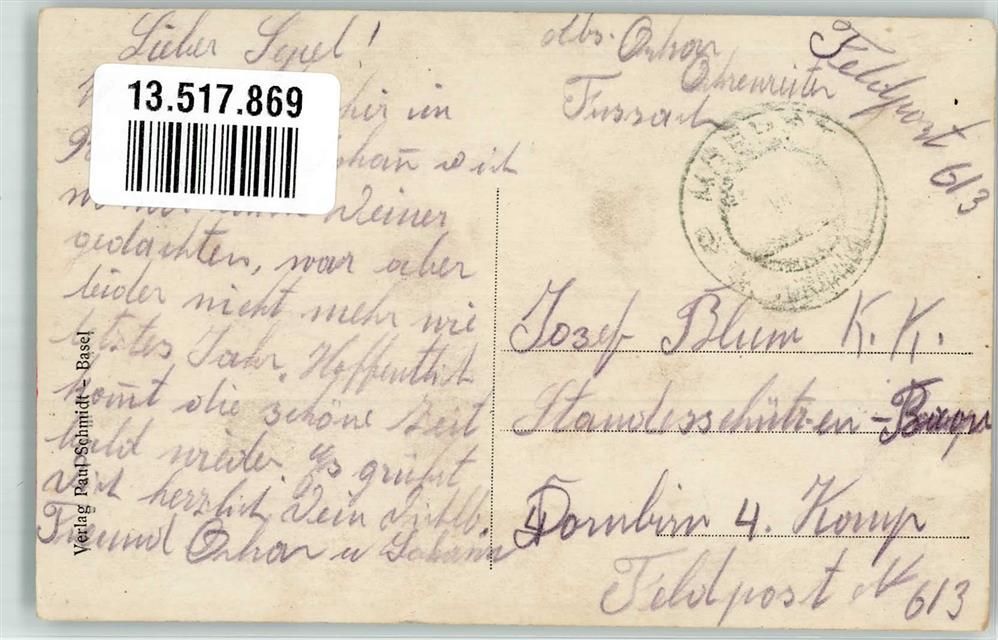 Lieber Sepel!
13.517.869
hier im
Deiner
gedachten, war aber
leider nicht mehr wie
letztes Jahr. Hoffentlich
kom̄t die schöne Zeit
bald wieder. Es grüßt
Dich herzlich Dein
Freund Oskar u Johann
Verlag Paul Schmidt - Basel
Abs. Oskar
Ohrenreiter
Fussach
Feldpost 613
Josef Blum K. K.
Standesschützen-Baon
Dornbirn 4. Komp
Feldpost N 613